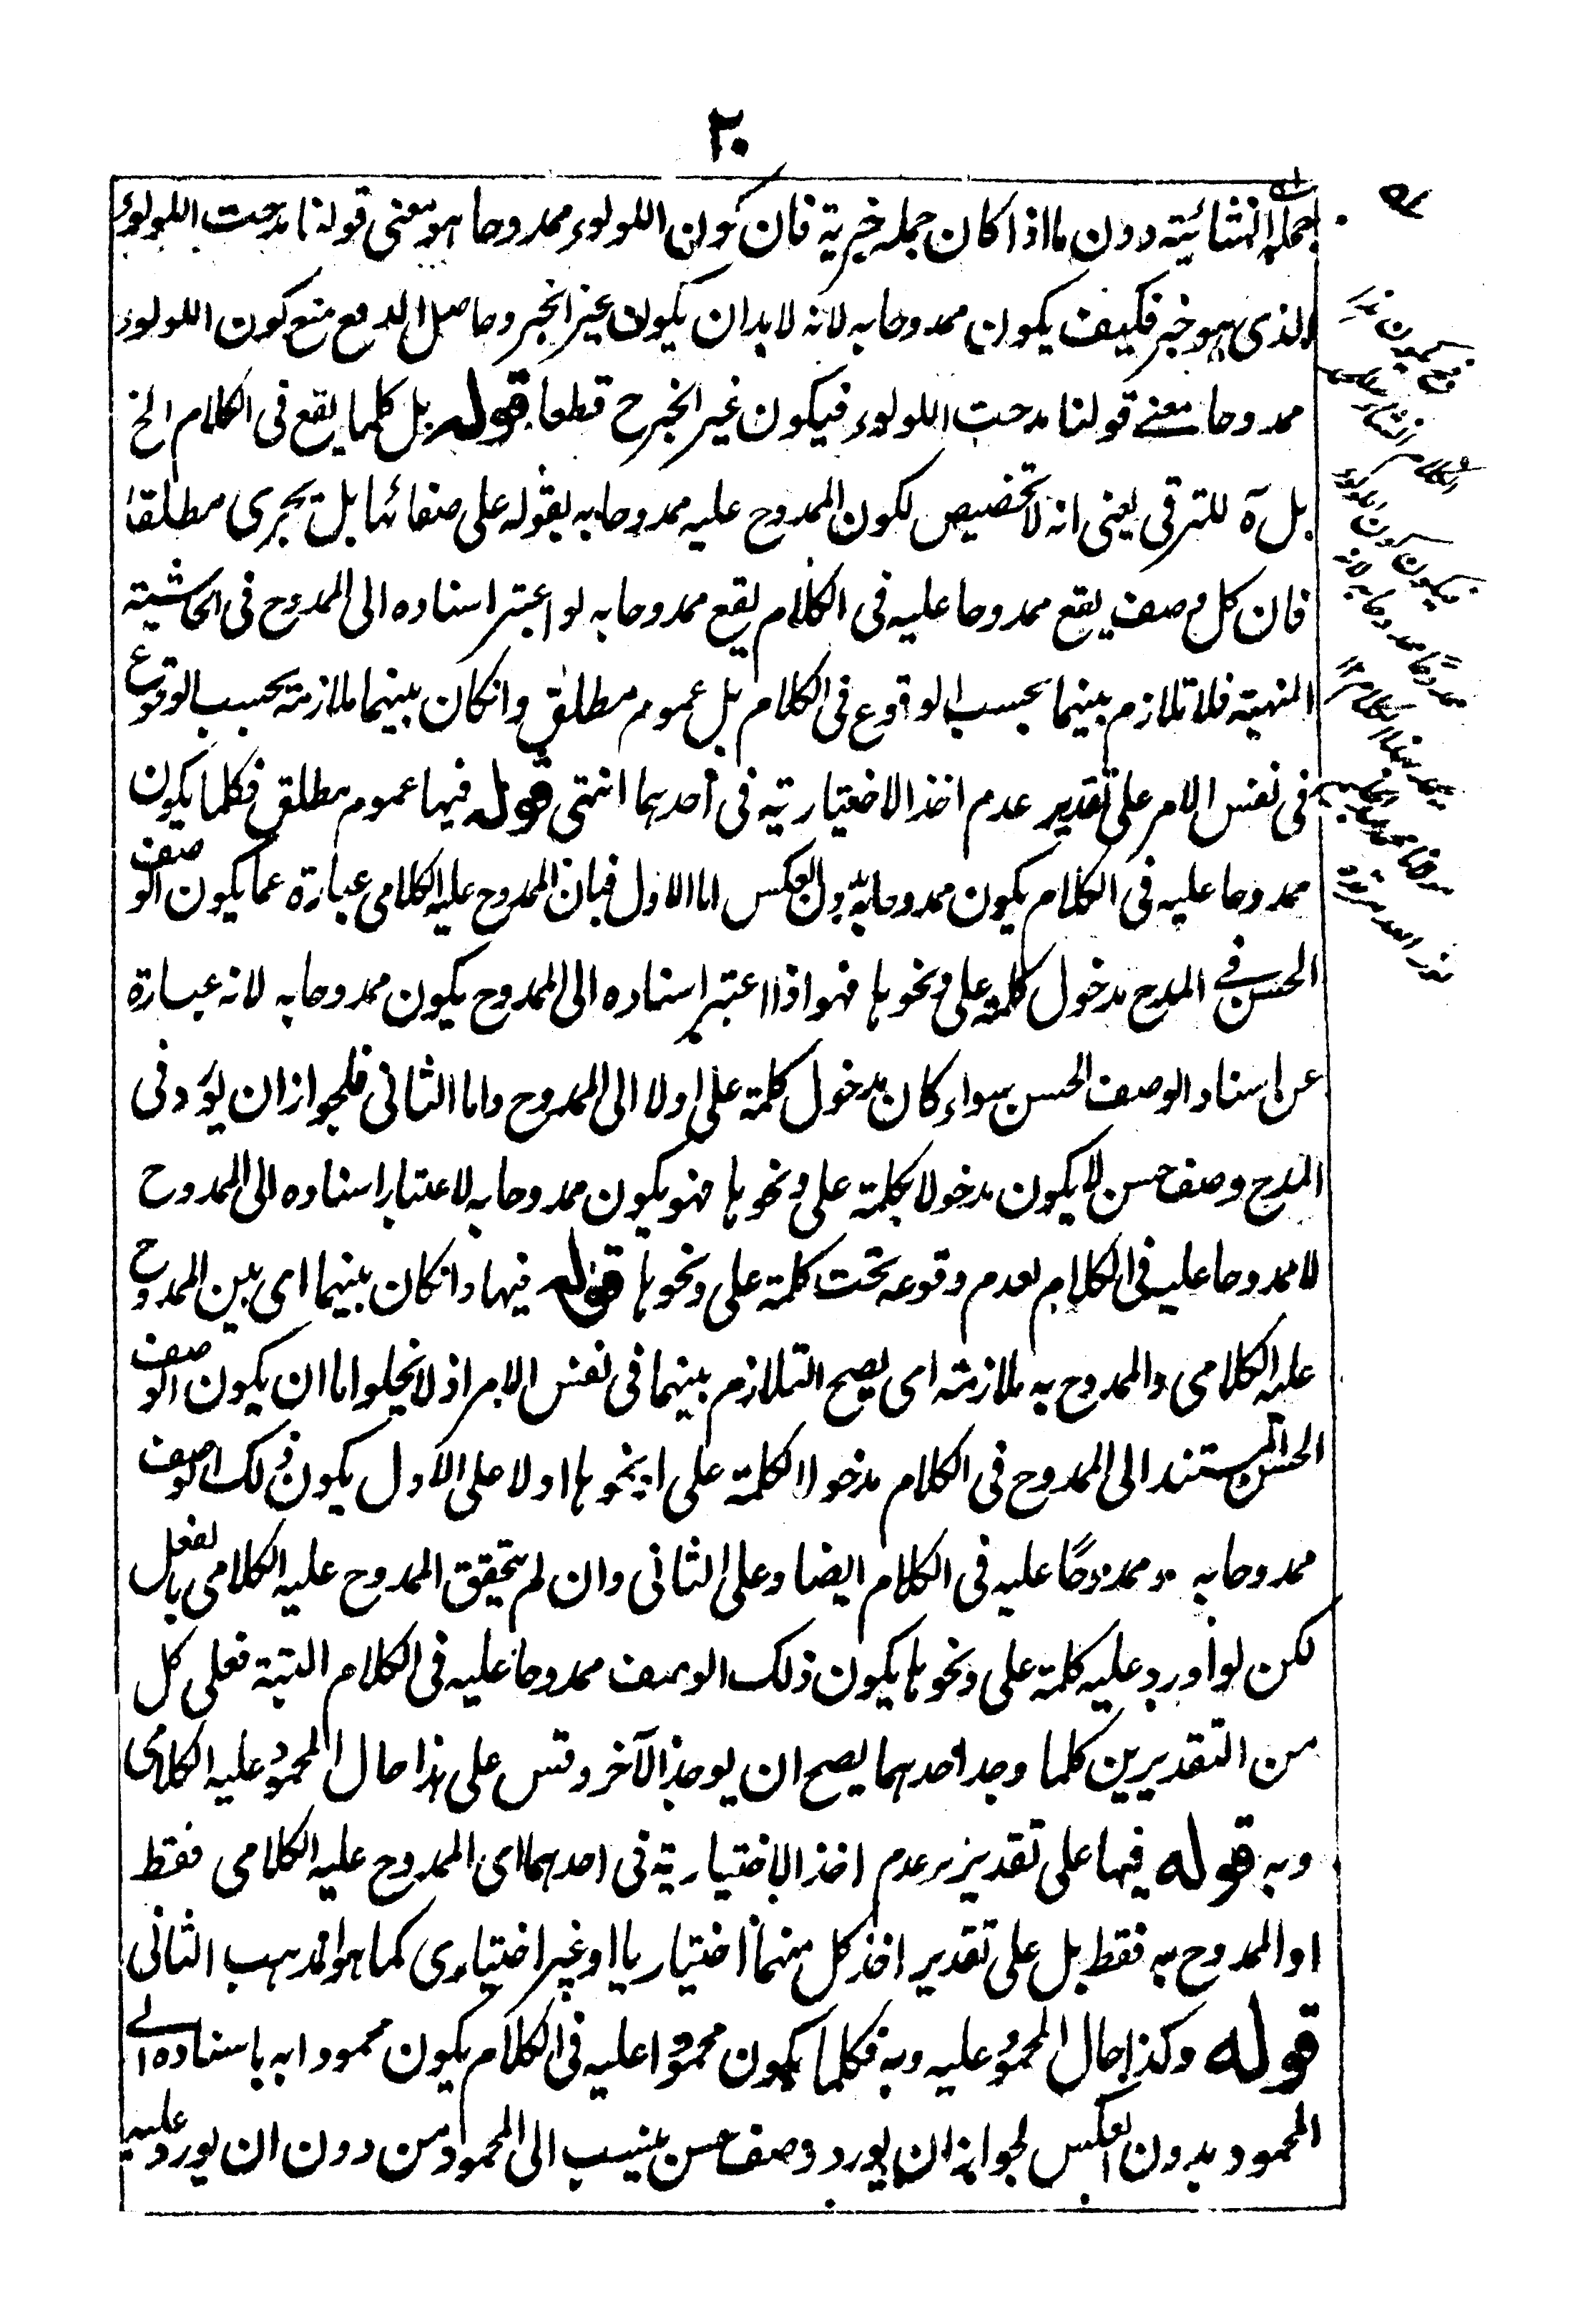 ٢٠
جملة انشائية دون ما اذا كان جملة خبرية فان كون اللولوء ممدوحا هو معنى قولنا مدحت اللولوء
الذى هو خبر فكيف يكون ممدوحا به لانه لا بد ان يكون غير الخبر وحاصل الدفع منع كون اللولوء
ممدوحا معنے قولنا مدحت اللولوء فيكون غير الخبر ح قطعا قوله بل كلما يقع فى الكلام الخ
بل آه للترقى يعنى انه لا تخصيص لكون الممدوح عليه ممدوحا به بقوله على صفائها بل يجرى مطلقا
فان كل وصف يقع ممدوحا عليه فى الكلام يقع ممدوحا به لو اعتبر اسناده الى الممدوح فى الحاشية
المنهية فلا تلازم بينهما بحسب الوقوع فى الكلام بل عموم مطلق وانكان بينهما ملازمة بحسب الوقوع
فى نفس الامر على تقدير عدم اخذ الاختيارية فى أحدهما انتهى قوله فيها عموم مطلق فكلما يكون
ممدوحا عليه فى الكلام يكون ممدوحا به بدون العكس اما الاول فبان الممدوح عليه الكلامى عبارة عما يكون الوصف
الحسن فے المدح مدخول كلمة على ونحوها فهو اذا اعتبر اسناده الى الممدوح يكون ممدوحا به لانه عبارة
عن اسناد الوصف الحسن سواء كان مدخول كلمة على اولا الى الممدوح واما الثانى فلجواز ان يؤد فى
المدح وصف حسن لا يكون مدخولا بكلمة على ونحوها فهو يكون ممدوحا به لاعتبار اسناده الى الممدوح
لا ممدوحا عليه فى الكلام لعدم وقوعه تحت كلمة على ونحوها قوله فيها وانكان بينهما اى بين الممدوح
عليه الكلامى والممدوح به ملازمة اى يصح التلازم بينهما فى نفس الامر اذ لا يخلوا اما ان يكون الوصف
الحسن المستند الى الممدوح فى الكلام مدخولا لكلمة على او نحوها اولا على الاول يكون ذلك الوصف
ممدوحا به وممدوحًا عليه فى الكلام ايضا وعلى الثانى وان لم يتحقق الممدوح عليه الكلامى بالفعل
لكن لو أورد عليه كلمة على ونحوها يكون ذلك الوصف ممدوحا عليه فى الكلام البتة فعلى كل
من التقديرين كلما وجد احدهما يصح ان يوجد الآخر وقس على هذا حال المحمود عليه الكلامى
وبه قوله فيها على تقدير عدم اخذ الاختيارية فى احدهما اى الممدوح عليه الكلامى فقط
او الممدوح به فقط بل على تقدير اخذ كل منهما اختياريا او غير اختيارى كما هو المذهب الثانى
قوله وكذا حال المحمود عليه وبه فكلما يكون محمودا عليه فى الكلام يكون محمودا به باسناده الے
المحمود بدون العكس لجواز ان يورد وصف حسن ينسب الى المحمود من دون ان يورد عليه